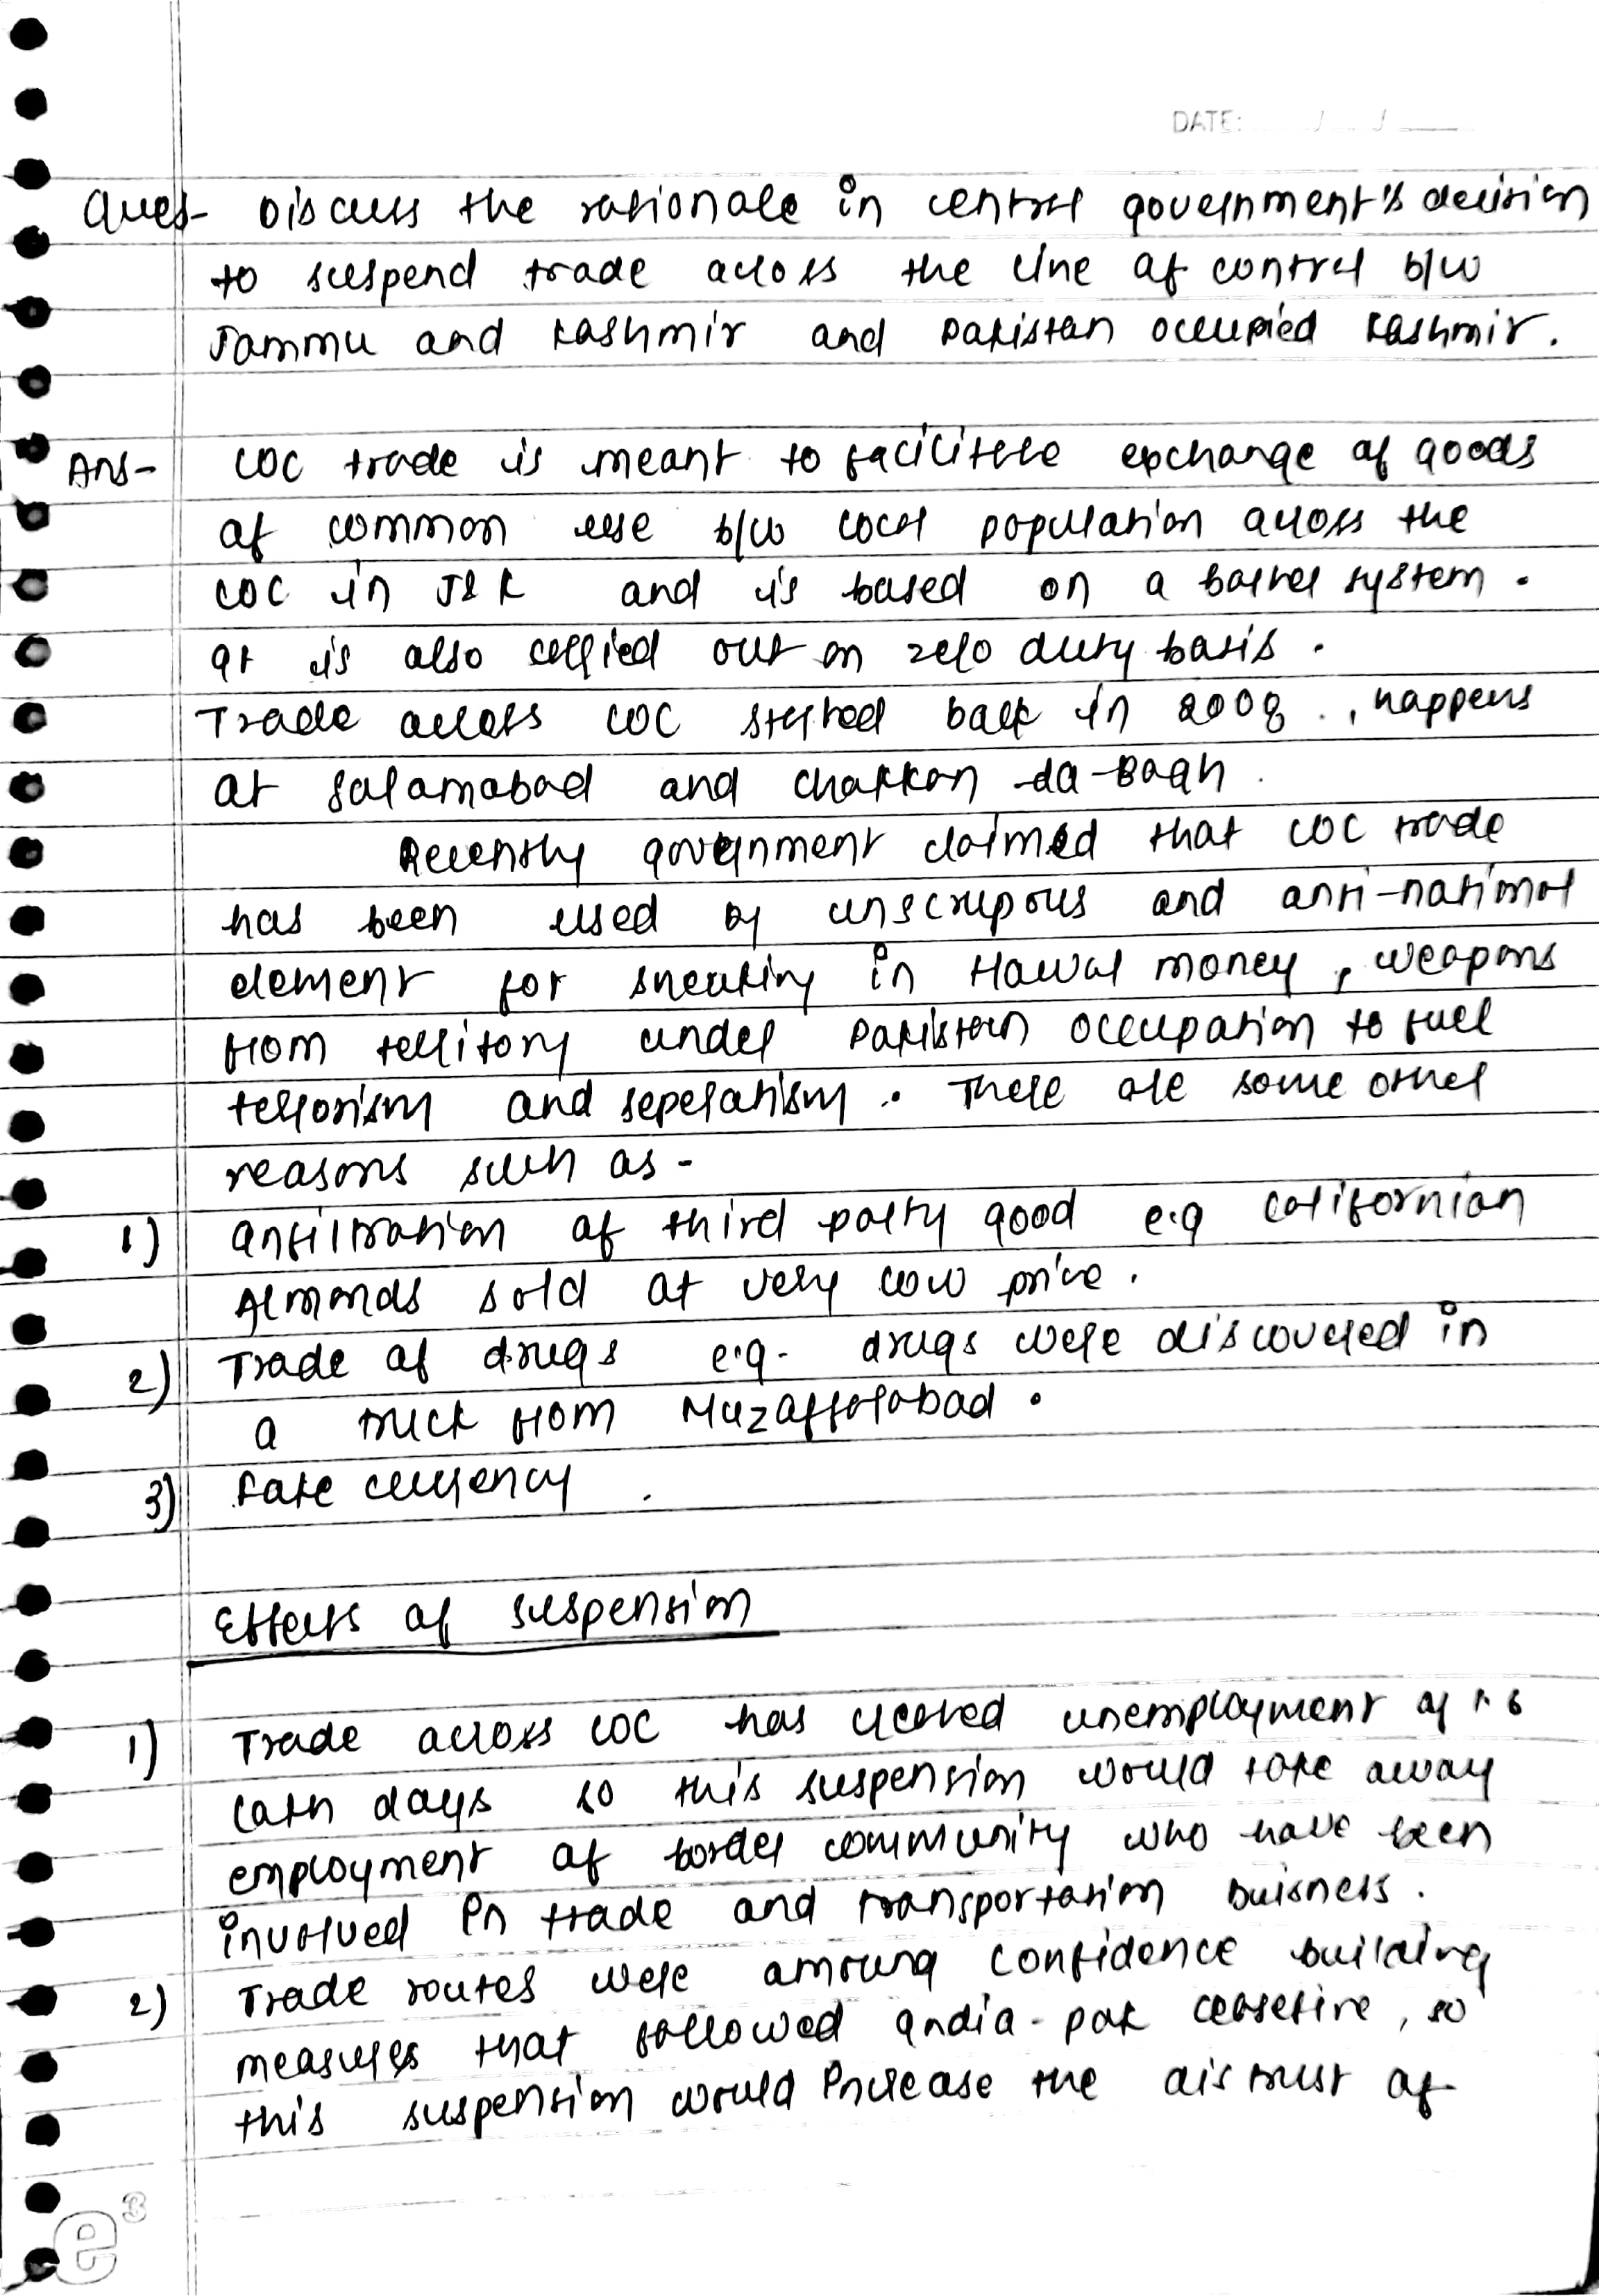 DATE: / /
Ques- Discuss the rationale in central government's decision
to suspend trade across the line of control b/w
Jammu and Kashmir and Pakistan occupied Kashmir.
Ans- LOC trade is meant to facilitate exchange of goods
of common use b/w local population across the
LOC in J&K and is based on a barter system.
It is also carried out on zero duty basis.
Trade across LOC started back in 2008, happens
at Salamabad and Chakkan-da-Bagh.
Recently government claimed that LOC trade
has been used by unscrupous and anti-national
element for sneaking in Hawal money, weapons
from territory under Pakistan occupation to fuel
terrorism and seperatism. There are some other
reasons such as-
1) Infiltration of third party good e.g Californian
Almonds sold at very low price.
2) Trade of drugs e.g. drugs were discovered in
a truck from Muzaffarabad.
3) Fake currency.
Effects of suspension
1) Trade across LOC has created unemployment of 1.6
lakh days so this suspension would take away
employment of border community who have been
involved in trade and transportation buisness.
2) Trade routes were amoung confidence building
measures that followed India-Pak ceasefire, so
this suspension would increase the distrust of
e3